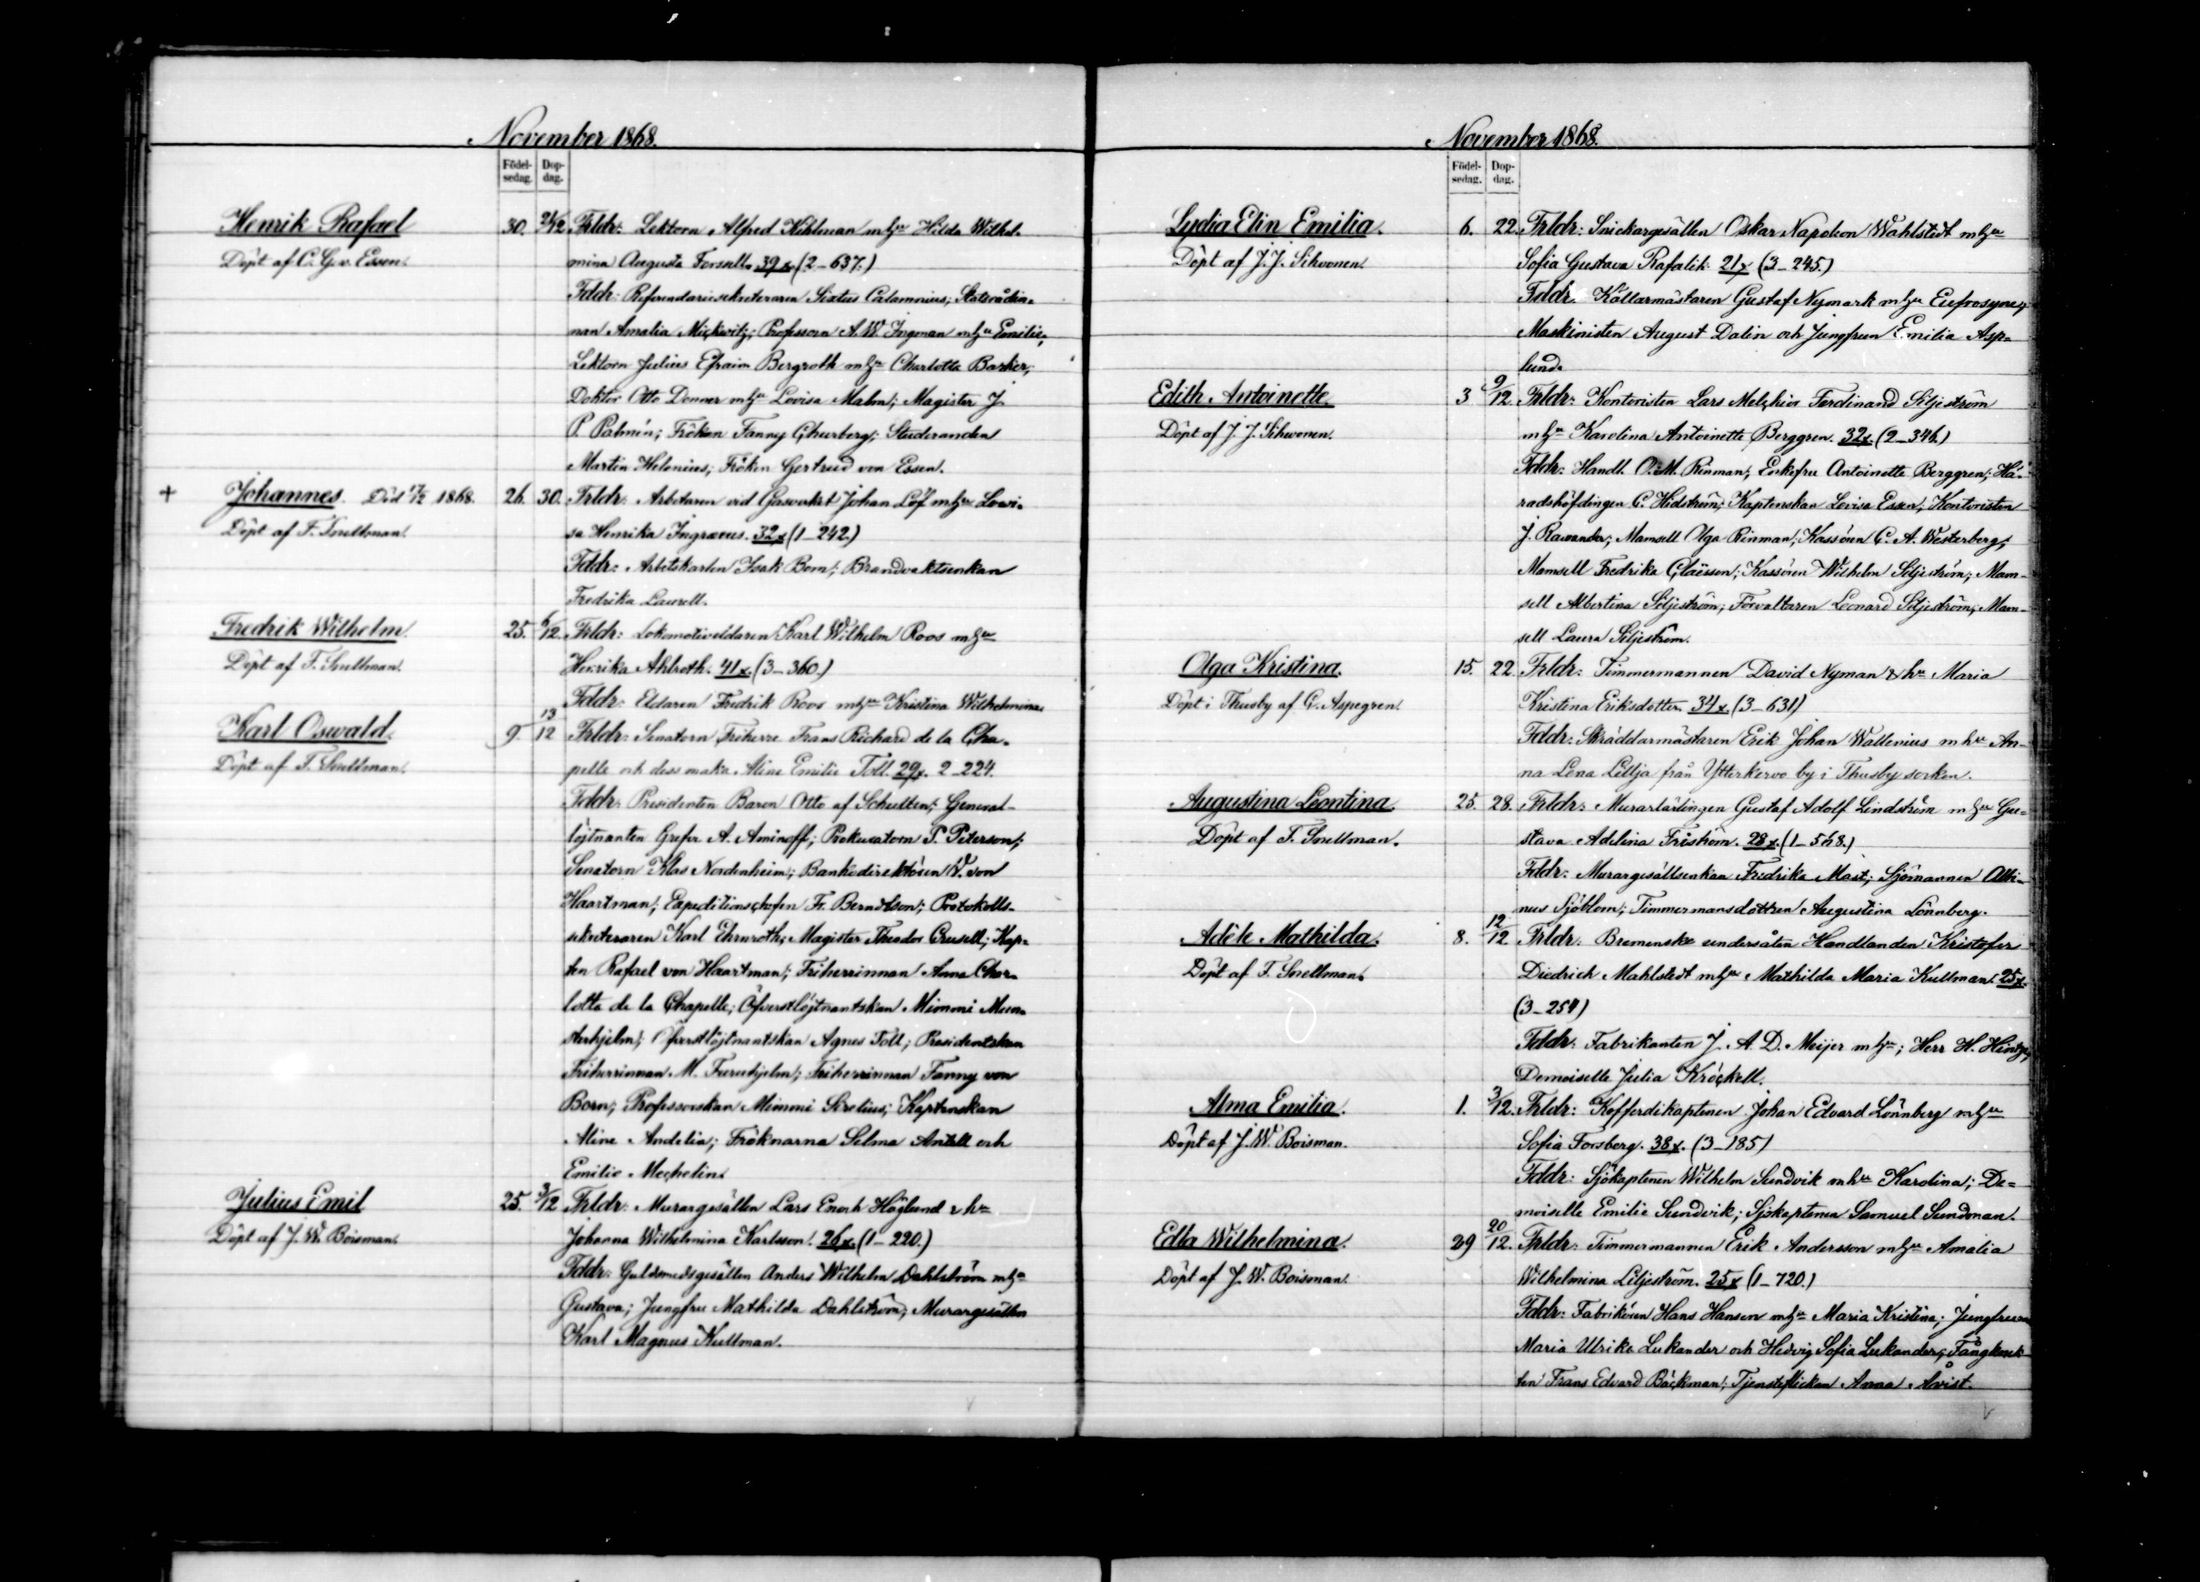 November 1868.
Födel-
sedag.
Dop-
dag.
Henrik Rafael
Döpt af C. G. v. Essen.
30. 24/12 Frldr: Lektorn Alfred Kihlman m h:u Hilda Wilhel-
mina Augusta Forsell. 39 x. (2–637.)
Fddr: Referendariesekreteraren Sixtus Calamnius; Statsrådin-
nan Amalia Mickwitz; Professorn A. W. Ingman m h:u Emilie;
Lektorn Julius Efraim Bergroth m h:u Charlotta Barker;
Doktor Otto Donner m h:u Lovisa Malm; Magister J.
P. Palmén; Fröken Fanny Churberg; Studeranden
Martin Helenius; Fröken Gertrud von Essen.
+ Johannes. Död 17/12 1868.
Döpt af F. Snellman.
26. 30. Frldr: Arbetaren vid Gasverket Johan Löf m h:u Lovi-
sa Henrika Ingraeus. 32 x (1–242.)
Fddr: Arbetskarlen Isak Bom; Brandvaktsenkan
Fredrika Laurell.
Fredrik Wilhelm.
Döpt af F. Snellman.
25. 6/12 Frldr: Lokomotiveldaren Karl Wilhelm Roos m h:u
Henrika Ahlroth. 41 x. (3–360.)
Fddr: Eldaren Fredrik Roos m h:u Kristina Wilhelmina.
Karl Oswald.
Döpt af F. Snellman.
9. 13/12 Frldr: Senatorn Friherre Frans Richard de la Cha-
pelle och dess maka Aline Emilie Toll. 29 x. 2–224.
Fddr: Presidenten Baron Otto af Schulten; General-
löjtnanten Grefve A. Aminoff; Prokuratorn P. Peterson;
Senatorn Klas Nordenheim; Bankodirektören W. von
Haartman; Expeditionschefen Fr. Berndtson; Protokolls-
sekreteraren Karl Ehrnroth; Magister Theodor Crusell; Kap-
ten Rafael von Haartman; Friherrinnan Anna Char-
lotta de la Chapelle; Öfverstlöjtnantskan Mimmi Mun-
sterhjelm; Öfverstlöjtnantskan Agnes Toll; Presidentskan
Friherrinnan M. Furuhjelm; Friherrinnan Fanny von
Born; Professorskan Mimmi Sirelius; Kaptenskan
Aline Andelin; Fröknarna Selma Antell och
Emilie Mechelin.
Julius Emil
Döpt af J. W. Boisman.
25. 3/12 Frldr: Murargesällen Lars Enoch Höglund & h:u
Johanna Wilhelmina Karlsson. 26 x. (1–220.)
Fddr: Guldsmedsgesällen Anders Wilhelm Dahlström m h:u
Gustava; Jungfru Mathilda Dahlström; Murargesällen
Karl Magnus Kullman.
November 1868.
Födel-
sedag.
Dop-
dag.
Lydia Elin Emilia.
Döpt af J. J. Sihvonen.
6. 22. Frldr: Snickargesällen Oskar Napoleon Wahlstedt m h:u
Sofia Gustava Rafalik. 21 x (3–245.)
Fddr: Källarmästaren Gustaf Nymark m h:u Eufrosyne;
Maskinisten August Dalin och Jungfrun Emilia Asp-
lund.
Edith Antoinette.
Döpt af J. J. Sihvonen.
3 9/12 Frldr: Kontoristen Lars Melchior Ferdinand Siljeström
m h:u Karolina Antoinette Berggren. 32 x. (2–346.)
Fddr: Handl. O. M. Rinman; Enkefru Antoinette Berggren; Hä-
radshöfdingen C. Hidström; Kaptenskan Lovisa Essen; Kontoristen
J. Rawander; Mamsell Olga Rinman; Kassören C. A. Westerberg;
Mamsell Fredrika Claësson; Kassören Wilhelm Siljeström; Mam-
sell Albertina Siljeström; Förvaltaren Leonard Siljeström; Mam-
sell Laura Siljeström.
Olga Kristina.
Döpt i Thusby af G. Aspegren.
15. 22. Frldr: Timmermannen David Nyman & h:u Maria
Kristina Eriksdotter. 34 x. (3–631)
Fddr: Skräddarmästaren Erik Johan Wallenius m h:u An-
na Lena Lillja från Ytterkervo by i Thusby socken.
Augustina Leontina
Döpt af F. Snellman.
25. 28. Frldr: Murarlärlingen Gustaf Adolf Lindström m h:u Gu-
stava Adelina Friström. 28 x. (1–568.)
Fddr: Murargesällsenkan Fredrika Mast; Sjömannen Albi-
nus Sjöblom; Timmermansdottren Augustina Lönnberg.
Adéle Mathilda.
Döpt af F. Snellman.
8. 12/12 Frldr: Bremenske undersåten Handlanden Kristofer
Diedrich Mahlstedt m h:u Mathilda Maria Kullman. 25 x.
(3–254)
Fddr: Fabrikanten J. A. D. Meijer m h:u; Herr H. Hintze;
Demoiselle Julia Kröckell.
Alma Emilia.
Döpt af J. W. Boisman.
1. 3/12. Frldr: Kofferdikaptenen Johan Edvard Lönnberg m h:u
Sofia Forsberg. 38 x. (3–185)
Fddr: Sjökaptenen Wilhelm Sundvik m h:u Karolina; De-
moiselle Emilie Sundvik; Sjökaptenen Samuel Sundman.
Edla Wilhelmina.
Döpt af J. W. Boisman.
29 20/12. Frldr: Timmermannen Erik Andersson m h:u Amalia
Wilhelmina Liljeström. 25 x (1–720.)
Fddr: Fabrikören Hans Hansen m h:u Maria Kristina; Jungfruun
Maria Ulrika Lukander och Hedvig Sofia Lukander;
Frans Edvard Bäckman; Tjensteflickan Anna